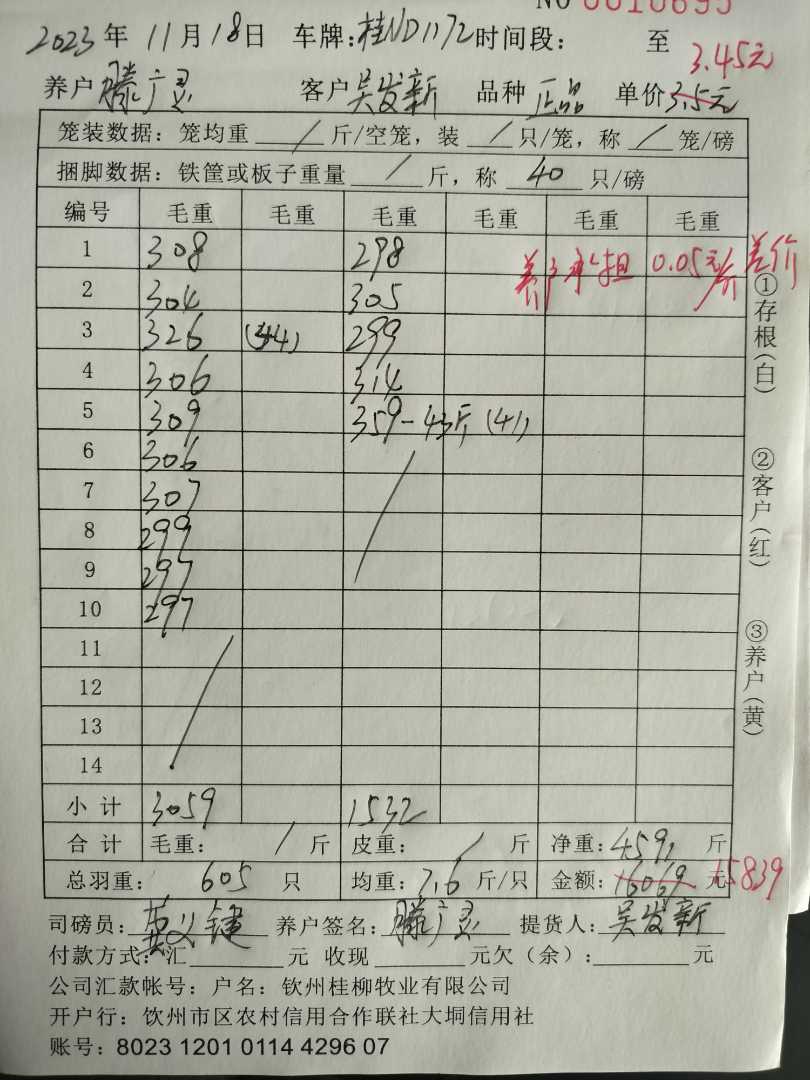 NO 0010695
2023年 11月18日 车牌:桂ND1172 时间段: 至
3.45元
养户 滕广灵 客户 吴发新 品种 正品 单价 3.5元
笼装数据:笼均重 / 斤/空笼,装 / 只/笼,称 / 笼/磅
捆脚数据:铁筐或板子重量 / 斤,称 40 只/磅
编号 毛重 毛重 毛重 毛重 毛重 毛重
1 308 298 养户承担 0.05元/斤差价
2 304 305
3 326 (44) 299
4 306 314
5 309 359-43斤 (41)
6 306
7 307
8 299
9 297
10 297
11
12
13
14
小计 3059 1532
合计 毛重: / 斤 皮重: / 斤 净重:4591 斤
总羽重: 605 只 均重:7.6 斤/只 金额:16069 元 15839
司磅员: 键 养户签名:滕广灵 提货人:吴发新
付款方式:汇 元 收现 元欠(余): 元
公司汇款帐号:户名:钦州桂柳牧业有限公司
开户行:钦州市区农村信用合作联社大垌信用社
账号:8023 1201 0114 4296 07
①存根(白)
②客户(红)
③养户(黄)